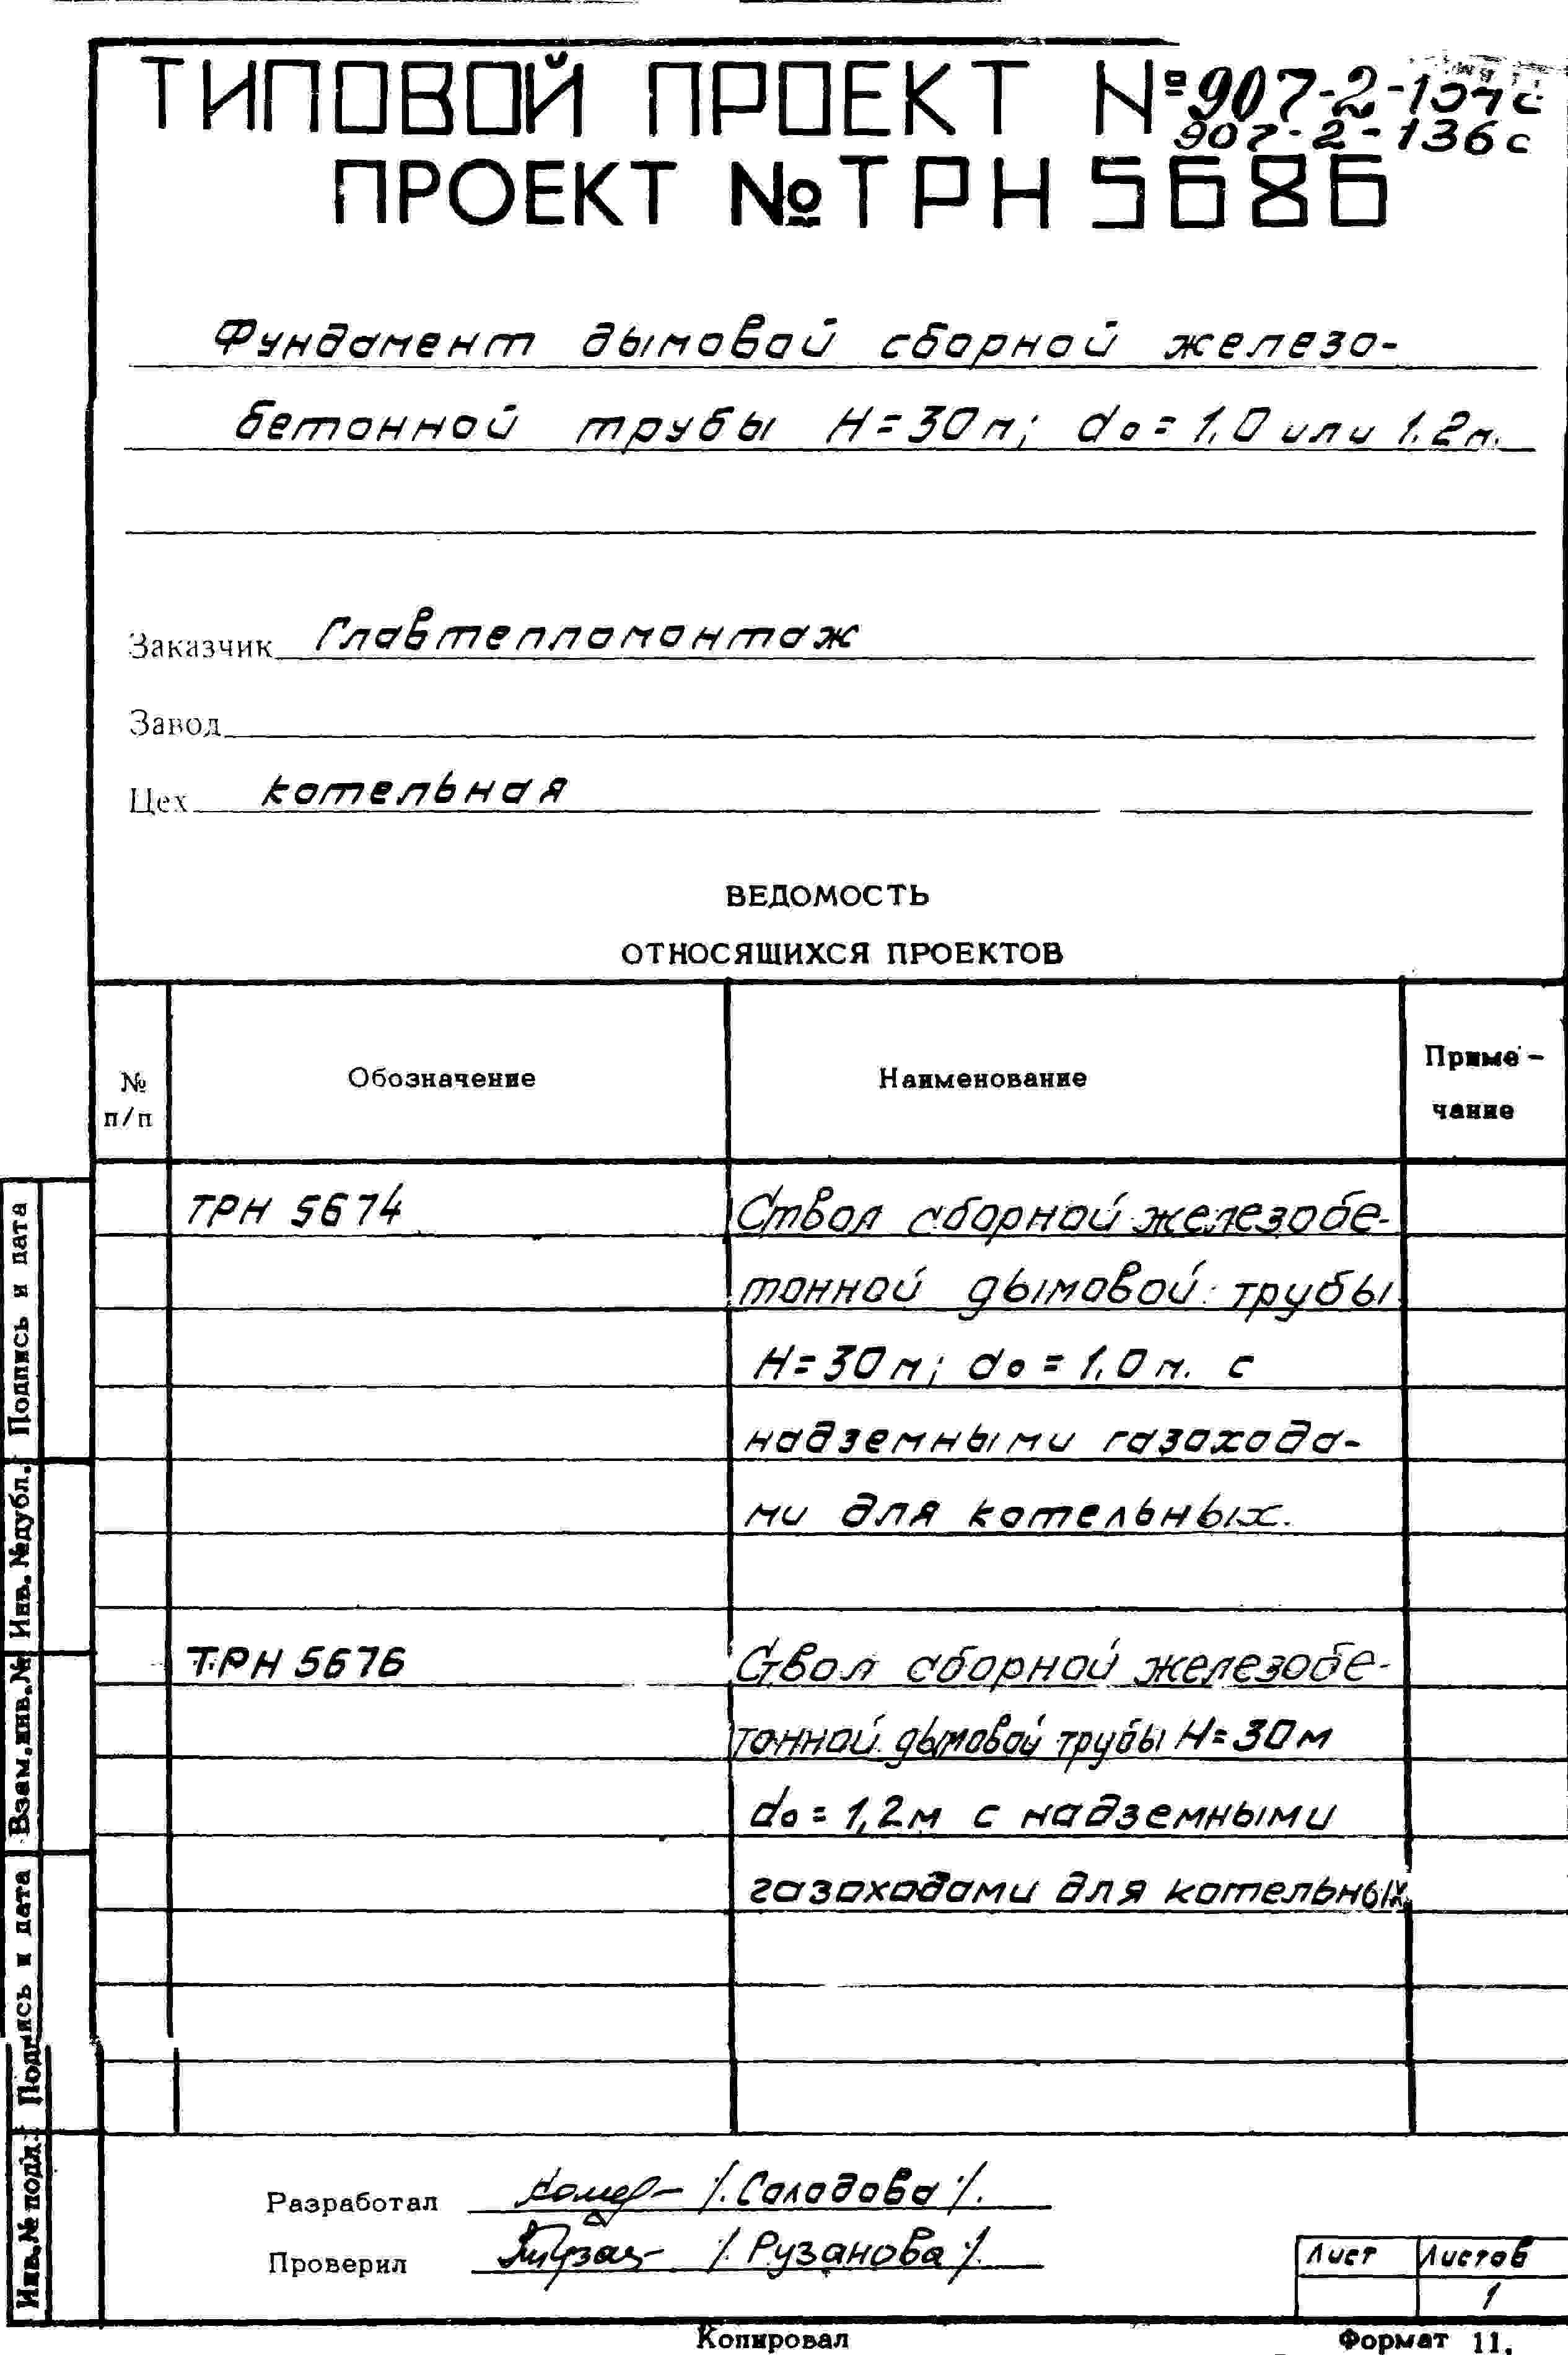 ТИПОВОЙ ПРОЕКТ №907-2-
907-2-136с
ПРОЕКТ № ТРН 5686
Фундамент дымовой сборной железо-
бетонной трубы Н=30м; do=1.0 или 1.2м.
Заказчик Главтепломонтаж
Завод
Цех котельная
ВЕДОМОСТЬ
ОТНОСЯЩИХСЯ ПРОЕКТОВ
№ п/п
Обозначение
Наименование
Приме-
чание
ТРН 5674
Ствол сборной железобе-
тонной дымовой трубы
Н=30м; do=1.0м. с
надземными газохода-
ми для котельных.
ТРН 5676
Ствол сборной железобе-
тонной дымовой трубы Н=30м
do=1,2м с надземными
газоходами для котельных
Разработал /Солодова/.
Проверил /Рузанова/.
Лист Листов
1
Копировал
Формат 11.
Подпись и дата
Инв.№дубл.
Взам.инв.№
Подпись и дата
Инв.№подл.